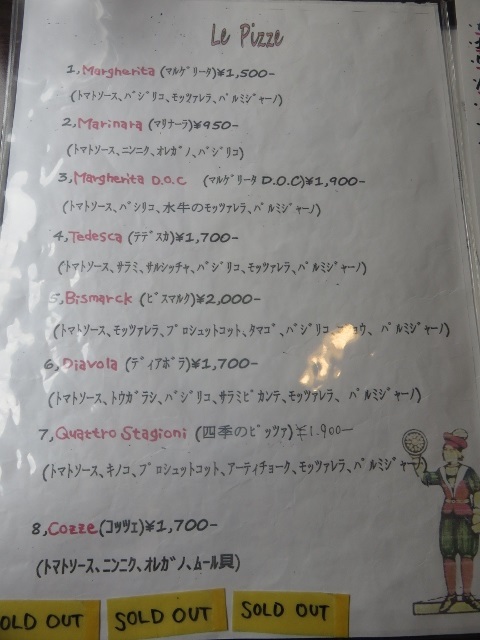 Le Pizze
1, Margherita (ﾏﾙｹﾞﾘｰﾀ)¥1,500-
(ﾄﾏﾄｿｰｽ、ﾊﾞｼﾞﾘｺ、ﾓｯﾂｧﾚﾗ、ﾊﾟﾙﾐｼﾞｬｰﾉ)
2, Marinara (ﾏﾘﾅｰﾗ)¥950-
(ﾄﾏﾄｿｰｽ、ﾆﾝﾆｸ、ｵﾚｶﾞﾉ、ﾊﾞｼﾞﾘｺ)
3, Margherita D.O.C (ﾏﾙｹﾞﾘｰﾀ D.O.C)¥1,900-
(ﾄﾏﾄｿｰｽ、ﾊﾞｼﾞﾘｺ、水牛のﾓｯﾂｧﾚﾗ、ﾊﾟﾙﾐｼﾞｬｰﾉ)
4, Tedesca (ﾃﾃﾞｽｶ)¥1,700-
(ﾄﾏﾄｿｰｽ、ｻﾗﾐ、ｻﾙｼｯﾁｬ、ﾊﾞｼﾞﾘｺ、ﾓｯﾂｧﾚﾗ、ﾊﾟﾙﾐｼﾞｬｰﾉ)
5, Bismarck (ﾋﾞｽﾏﾙｸ)¥2,000-
(ﾄﾏﾄｿｰｽ、ﾓｯﾂｧﾚﾗ、ﾌﾟﾛｼｭｯﾄｺｯﾄ、ﾀﾏｺﾞ、ﾊﾞｼﾞﾘｺ、 ﾊﾟﾙﾐｼﾞｬｰﾉ)
6, Diavola (ﾃﾞｨｱﾎﾞﾗ)¥1,700-
(ﾄﾏﾄｿｰｽ、ﾄｳｶﾞﾗｼ、ﾊﾞｼﾞﾘｺ、ｻﾗﾐﾋﾟｶﾝﾃ、ﾓｯﾂｧﾚﾗ、 ﾊﾟﾙﾐｼﾞｬｰﾉ)
7, Quattro Stagioni (四季のﾋﾟｯﾂｧ)¥1.900-
(ﾄﾏﾄｿｰｽ、ｷﾉｺ、ﾌﾟﾛｼｭｯﾄｺｯﾄ、ｱｰﾃｨﾁｮｰｸ、ﾓｯﾂｧﾚﾗ、ﾊﾟﾙﾐｼﾞｬｰﾉ)
8, Cozze(ｺｯﾂｪ)¥1,700-
(ﾄﾏﾄｿｰｽ、ﾆﾝﾆｸ、ｵﾚｶﾞﾉ、ﾑｰﾙ貝)
OLD OUT SOLD OUT SOLD OUT